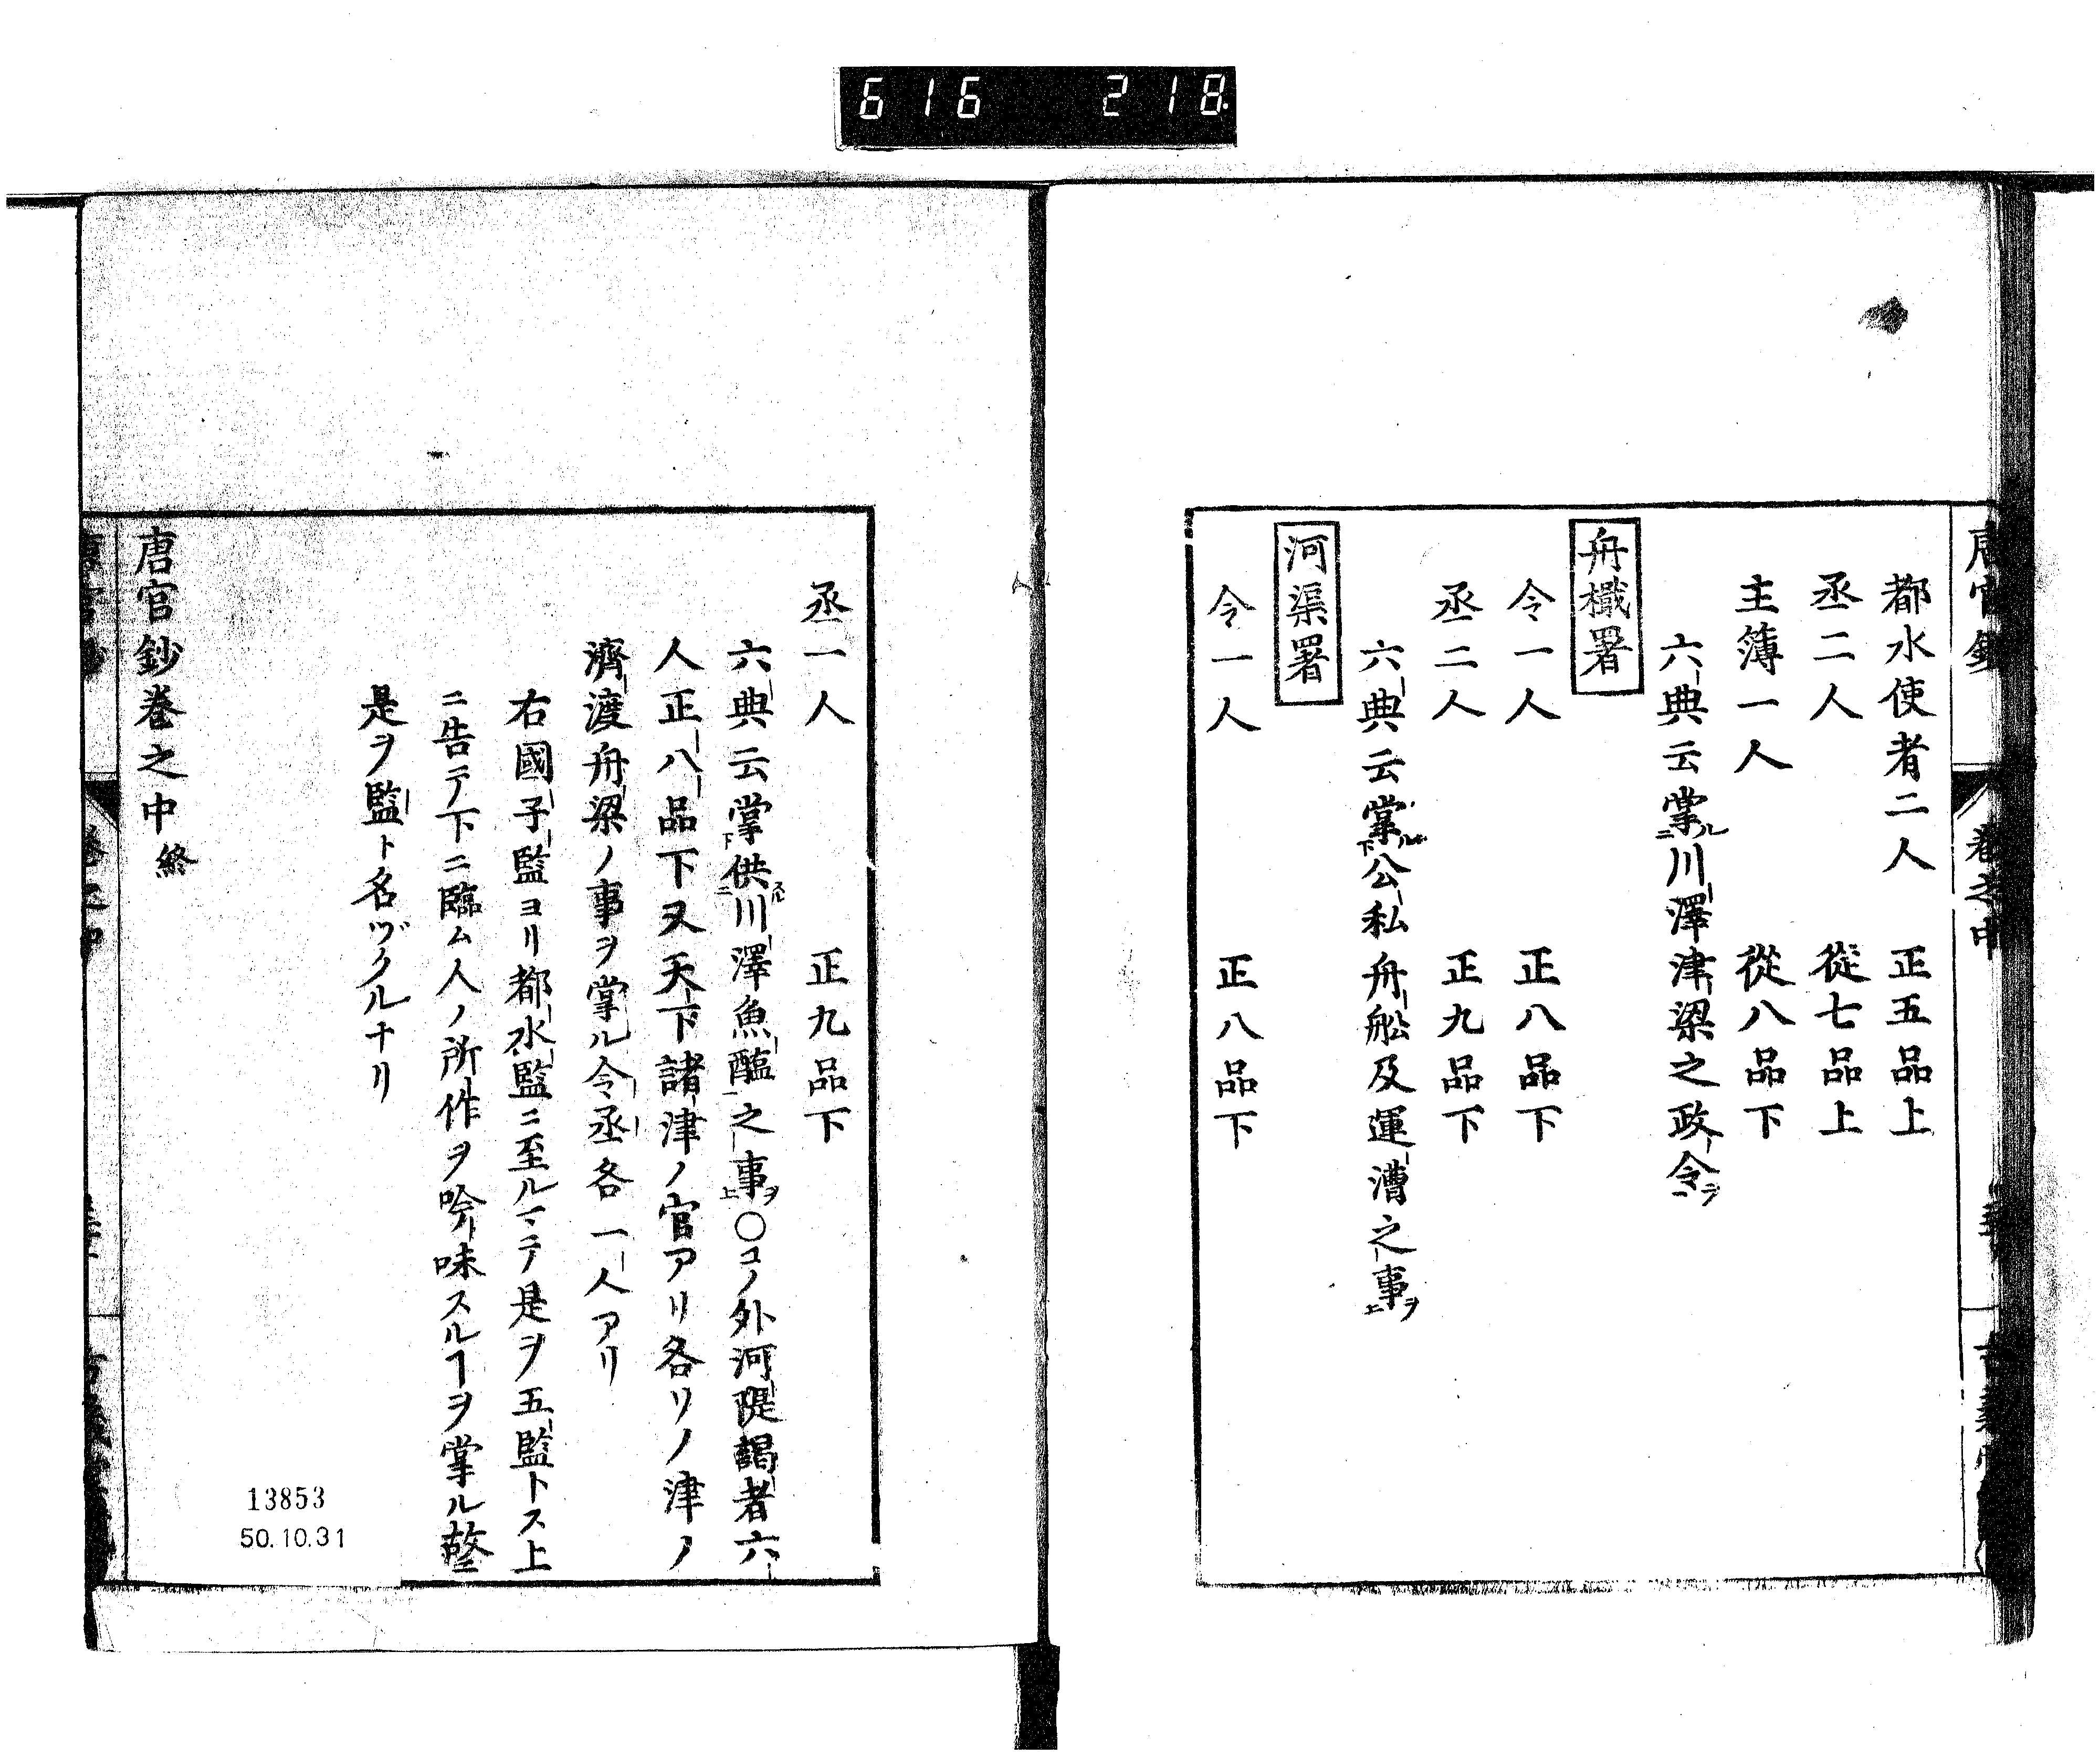 616 218
都水使者二人 正五品上
丞二人 從七品上
主簿一人 從八品下
六典云掌ル二川澤津梁之政令ヲ一
舟檝署
令一人 正八品下
丞二人 正九品下
六典云掌ル下公私舟舩及運漕之事ヲ上
河渠署
令一人 正八品下
丞一人 正九品下
六典云掌下供スル二川澤魚醢一之事ヲ上〇コノ外河隄謁者六
人正八品下又天下諸津ノ官アリ各リノ津ノ
濟渡舟梁ノ事ヲ掌ル令丞各一人アリ
右國子監ヨリ都水監ニ至ルマテ是ヲ五監トス上
ニ告テ下ニ臨ム人ノ所作ヲ吟味スルヿヲ掌ル故ニ
是ヲ監ト名ヅクルナリ
唐官鈔巻之中終
13853
50.10.31